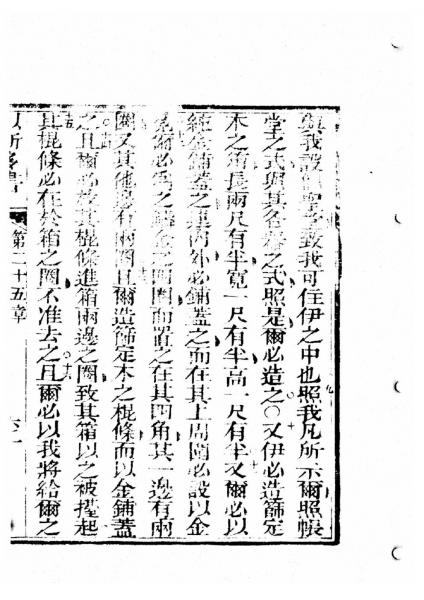 與我設個聖者致我可住伊之中也照我凡所示爾照帳
堂之式與其各器之式照是爾必造之○又伊必造篩定
木之箱長兩尺有半寬一尺有半高一尺有半又爾必以
純金鋪蓋之裏內外必鋪蓋之而在其上周圍必設以金
冕爾必為之鑄金之四圈而置之在其四角其一邊有兩
圈又其他邊有兩圈且爾造篩定木之棍條而以金鋪蓋
之且爾必於其棍條進箱兩邊之圈致其箱以之被擡起
其棍條必在於箱之圈不准去之且爾必以我將給爾之
第二十五章